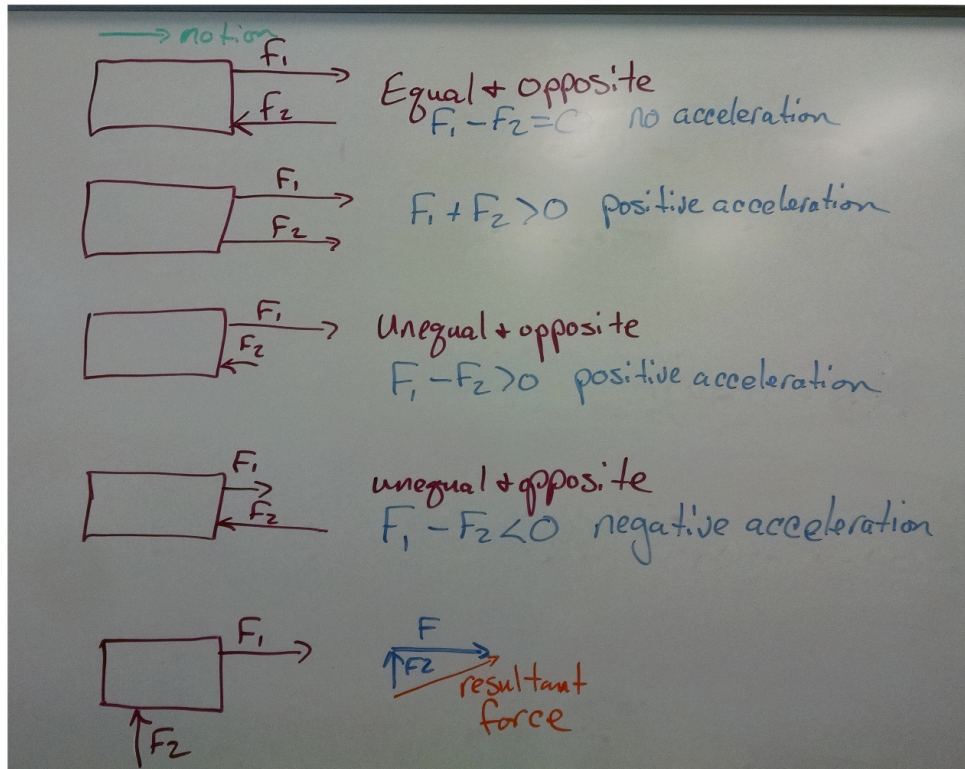 motion
F₁
F₂
Equal + opposite
F₁ - F₂ = 0 no acceleration
F₁
F₂
F₁ + F₂ > 0 positive acceleration
F₁
F₂
Unequal + opposite
F₁ - F₂ > 0 positive acceleration
F₁
F₂
unequal + opposite
F₁ - F₂ < 0 negative acceleration
F₁
F₂
F
F2
resultant
force